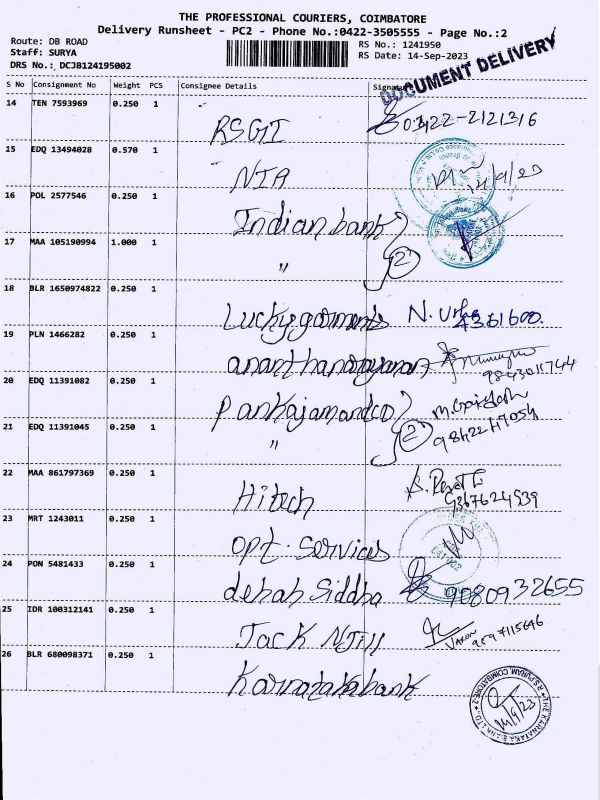 THE PROFESSIONAL COURIERS, COIMBATORE
Delivery Runsheet - PC2 - Phone No.:0422-3505555 - Page No.:2
Route: DB ROAD
RS No.: 1241950
Staff: SURYA
RS Date: 14-Sep-2023
DRS No.: DCJB124195002
DOCUMENT DELIVERY
S No Consignment No Weight PCS Consignee Details Signature
14 TEN 7593969 0.250 1
RSGI
15 EDQ 13494028 0.570 1
NIA 14/9/23
16 POL 2577546 0.250 1
Indian bank
17 MAA 105190994 1.000 1
" 2
18 BLR 1650974822 0.250 1
Lucky garments
19 PLN 1466282 0.250 1
ananthanarayanan
20 EDQ 11391082 0.250 1
Pankajamandco
21 EDQ 11391045 0.250 1
" 2
22 MAA 861797369 0.250 1
Hitech
23 MRT 1243011 0.250 1
opt. services
24 PON 5481433 0.250 1
dehah Siddha 9080932655
25 IDR 100312141 0.250 1
Jack N Jill
26 BLR 680098371 0.250 1
Karnatakabank
THE KARNATAKA BANK LTD., R.S. PURAM, COIMBATORE-2
14/9/23